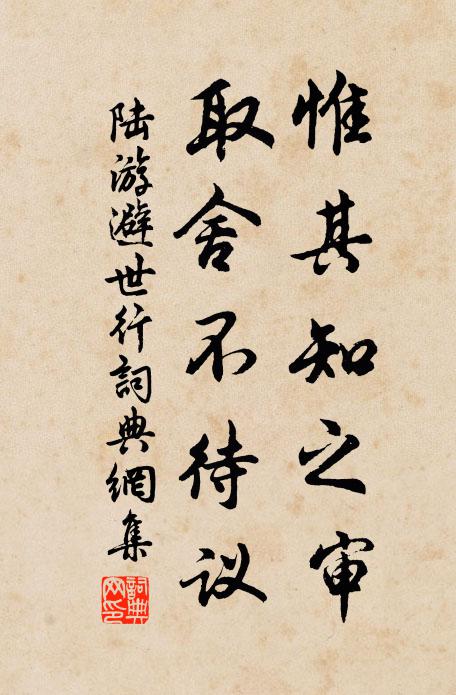 惟其知之审
取舍不待议
陆游避世行詞典網集
詞典
网印